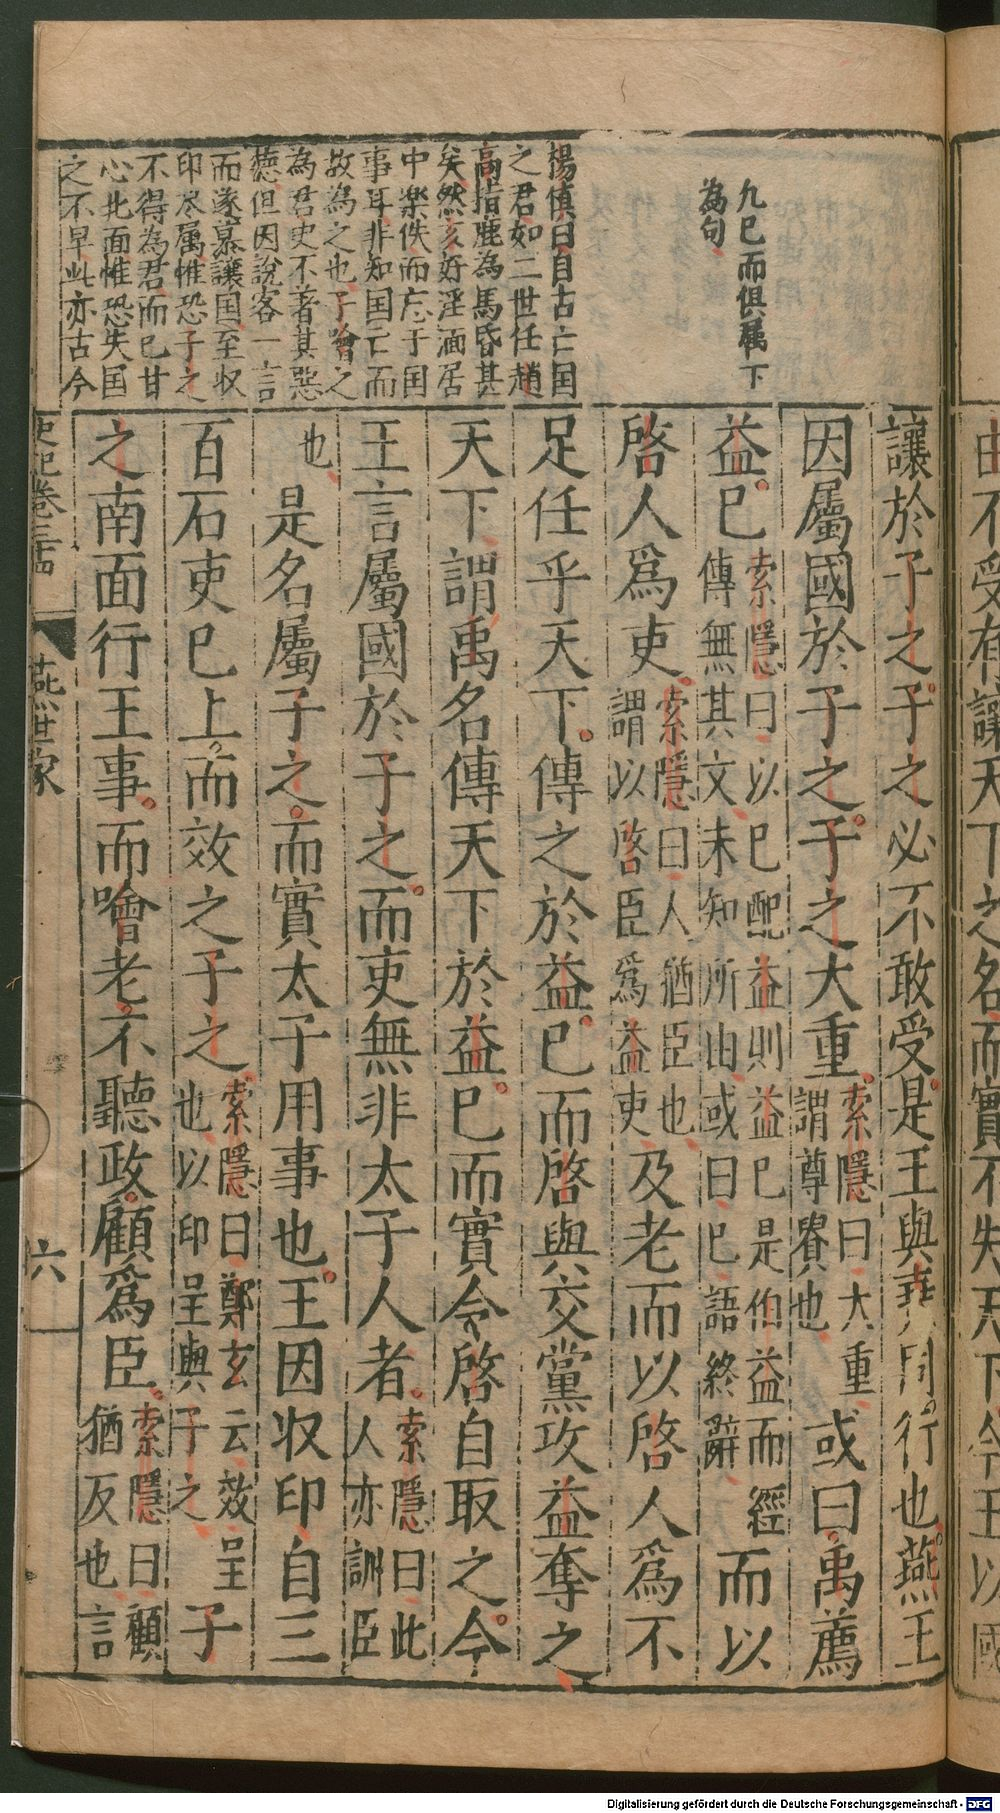 由不受有讓天下之名而實不失天下今王以國
九已而俱屬下
為句
楊慎曰自古亡国
之君如二世任趙
高指鹿為馬昏甚
矣然亥好淫湎居
中樂佚而忘于国
事耳非知国亡而
故為之也子噲之
為君史不著其惡
德但因說客一言
而遂慕讓国至収
印尽属惟恐子之
不得為君而已甘
心北面惟恐失国
之不早此亦古今
讓於子之子之必不敢受是王與堯同行也燕王
因屬國於子之子之大重索隱曰大重謂尊貴也或曰禹薦
益已索隱曰以已配益則益已是伯益而經傳無其文未知所由或曰已語終辭而以
啓人爲吏索隱曰人猶臣也謂以啓臣爲益吏及老而以啓人爲不
足任乎天下傳之於益已而啓與交黨攻益奪之
天下謂禹名傳天下於益已而實令啓自取之今
王言屬國於子之而吏無非太子人者索隱曰此人亦訓臣
也是名屬子之而實太子用事也王因収印自三
百石吏已上而效之子之索隱曰鄭玄云效呈也以印呈與子之子
之南面行王事而噲老不聽政顧爲臣索隱曰顧猶反也言
史記卷三十四 燕世家 六
Digitalisierung gefördert durch die Deutsche Forschungsgemeinschaft - DFG